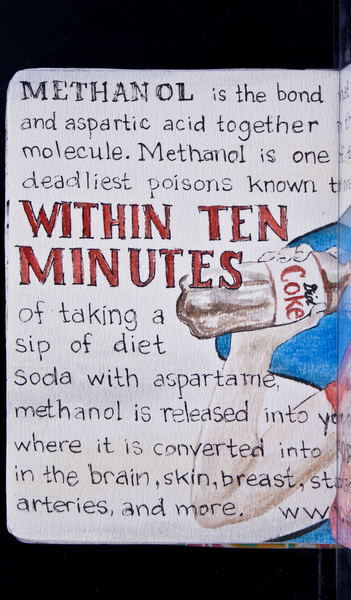 METHANOL is the bond
and aspartic acid together
molecule. Methanol is one
deadliest poisons known
WITHIN TEN
MINUTES
Diet
Coke
of taking a
sip of diet
soda with aspartame,
methanol is released into
where it is converted into
in the brain, skin, breast,
arteries, and more. WW